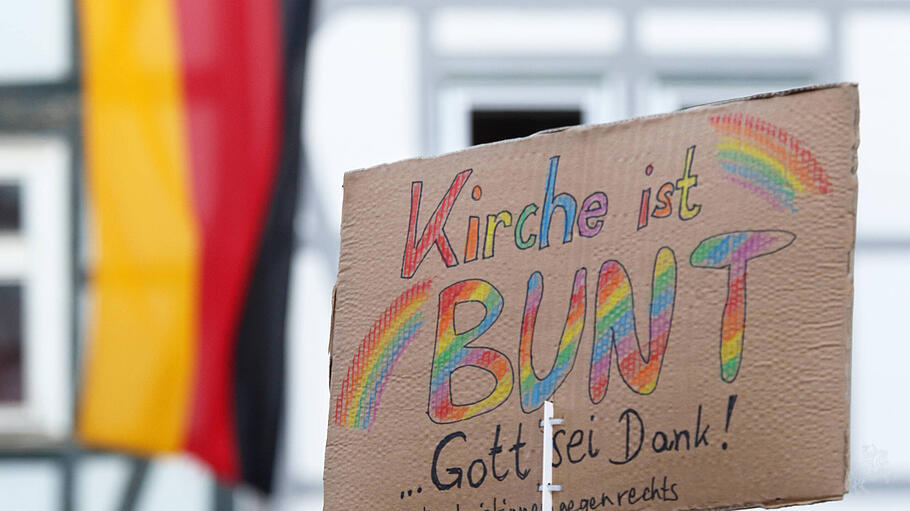 Kirche ist
BUNT
...Gott sei Dank!
gegenrechts